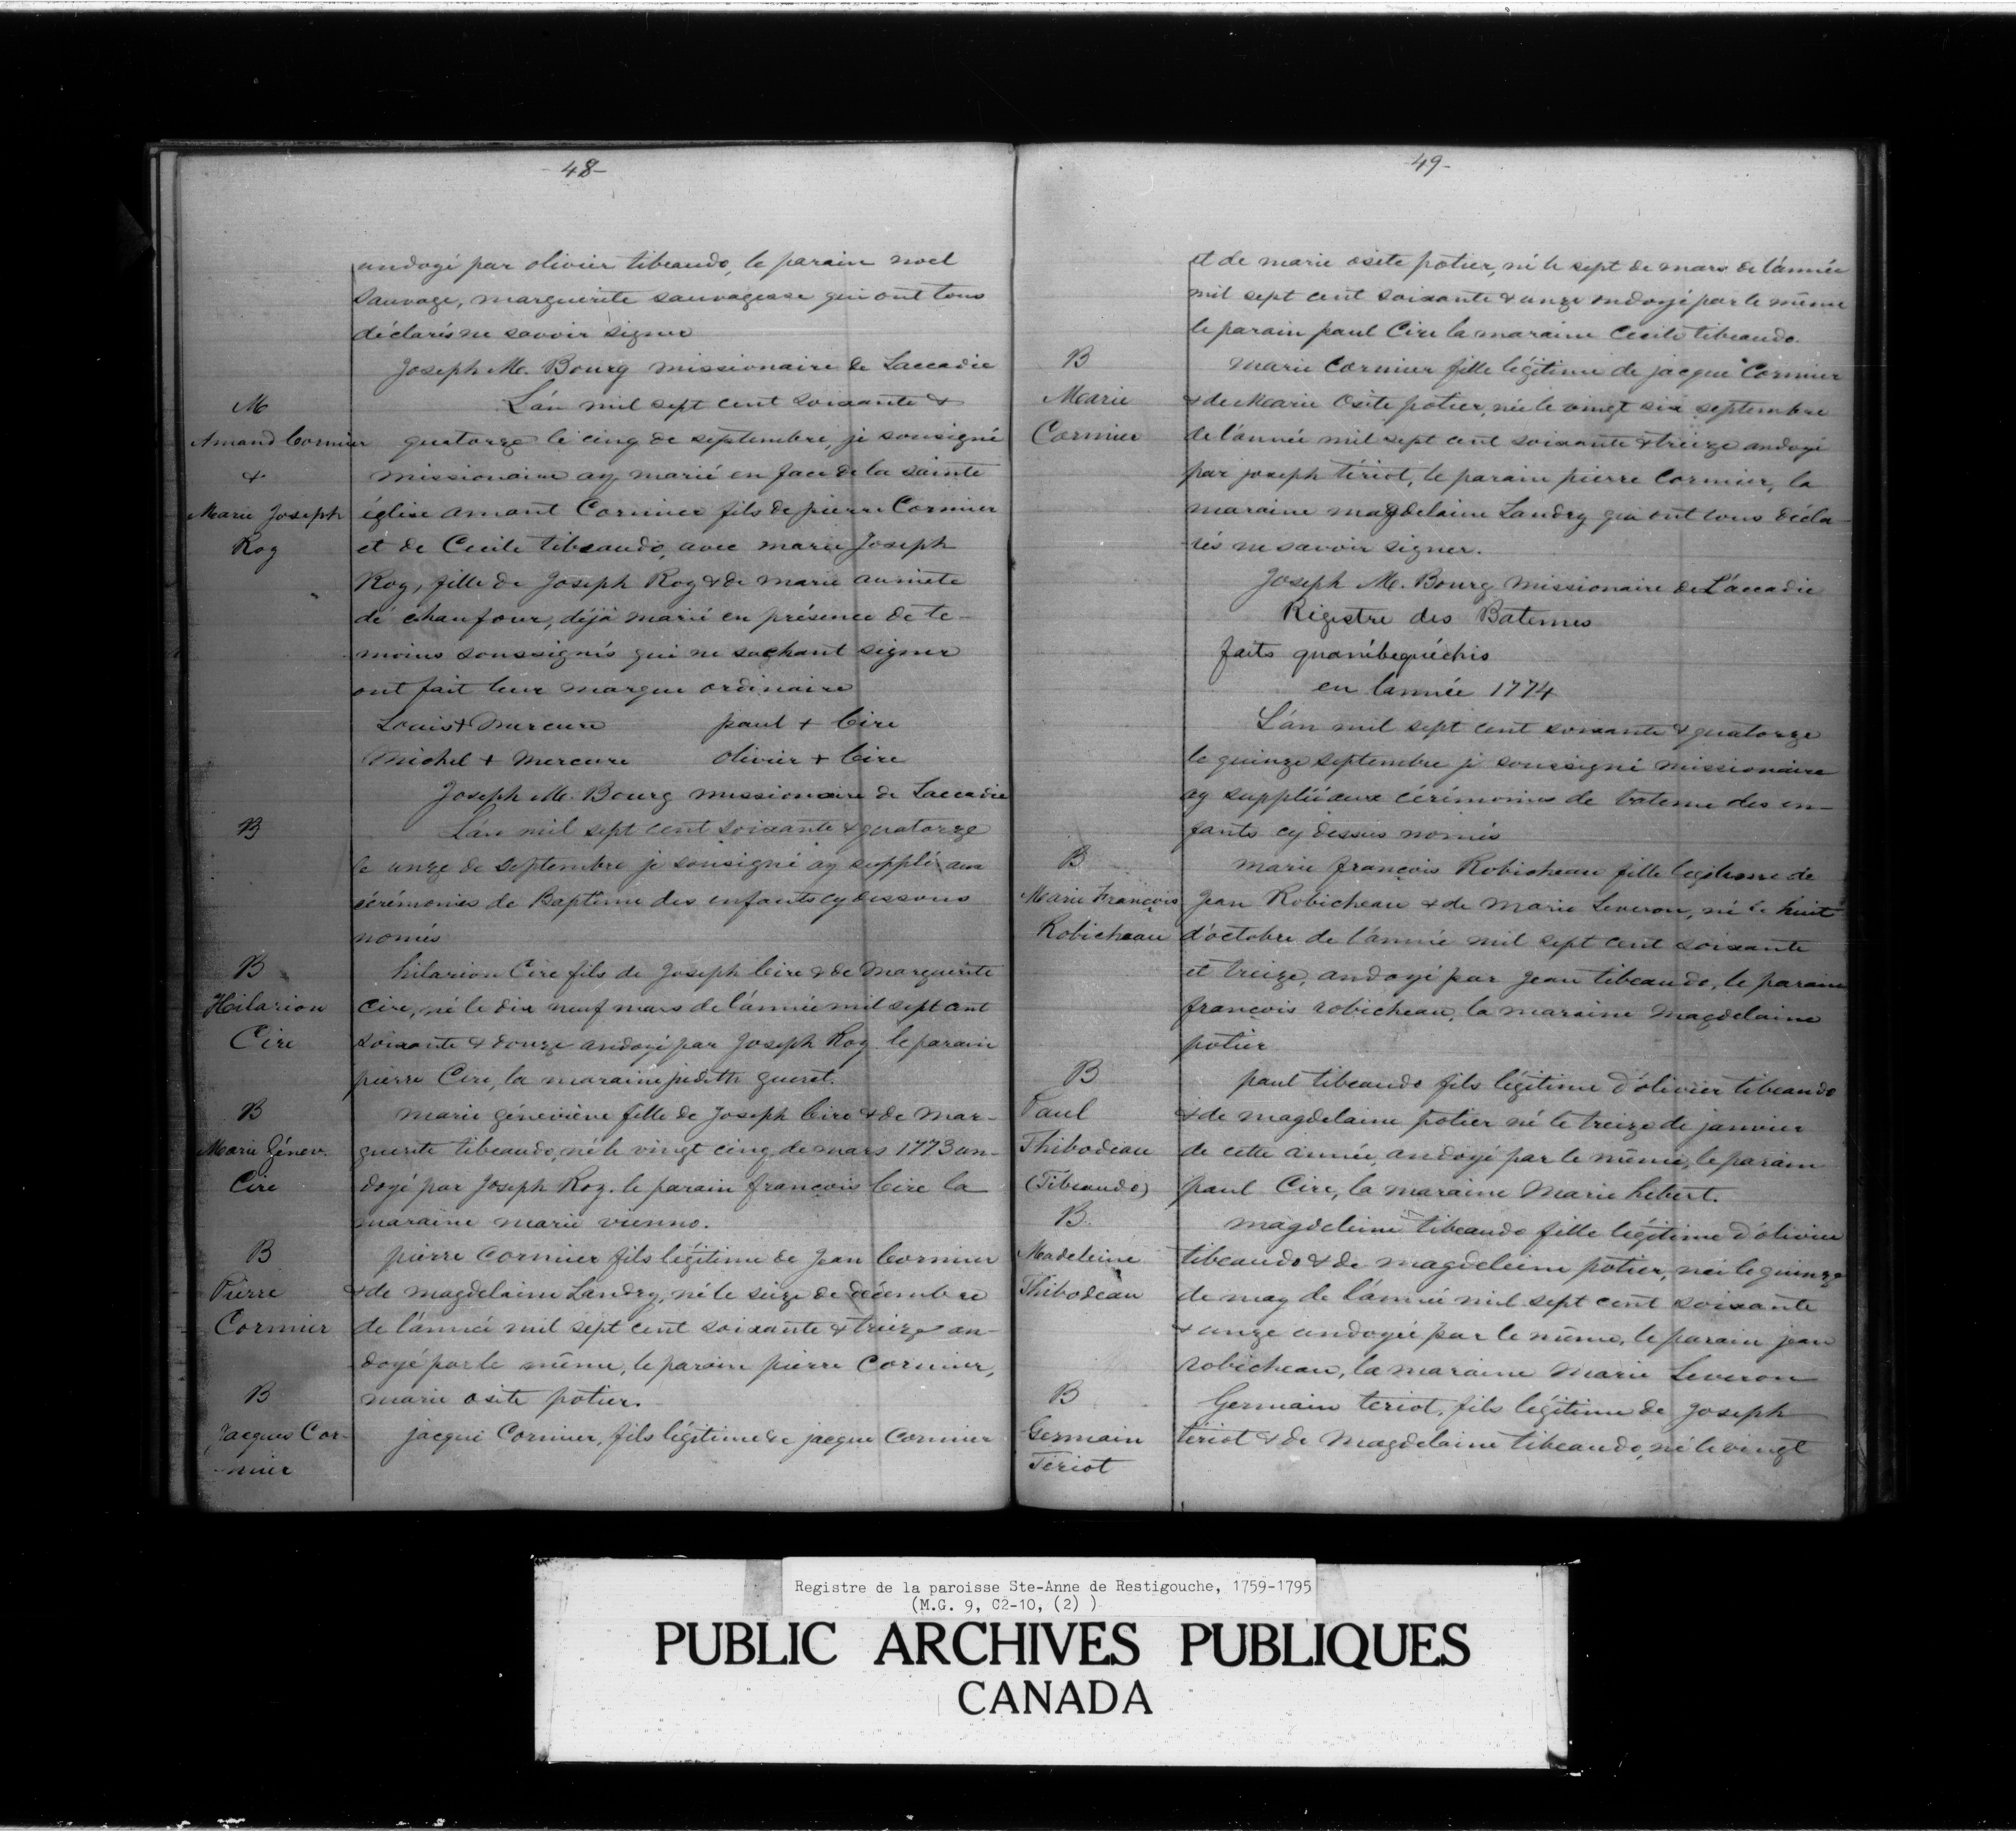 -48-
andoyé par olivier tibeaudo, le parain noel
sauvage, marguerite sauvagesse qui ont tous
déclarés ne savoir signer
Joseph M. Bourg missionaire de Laccadie
M
L'an mil sept cent soixante &
Amand Cormier
quatorze le cinq de septembre, je sousigné
&
missionaire ay marié en face de la sainte
Marie Joseph
église amant Cormier fils de pierre Cormier
Roy
et de Cecile tibeaudo, avec marie Joseph
Roy, fille de Joseph Roy & de marie
de chaufour, déjà marié en présence de te-
moins soussignés qui ne sachant signer
ont fait leur marque ordinaire
Louis + Mercure paul + Cire
Michel + Mercure olivier + Cire
Joseph M. Bourg missionaire de Laccadie
B
L'an mil sept cent soixante & quatorze
le unze de septembre je sousigné ay supplé aux
cérémonies de Baptême des enfants cy dessous
només
B
hilarion Cire fils de Joseph Cire & de Marguerite
Hilarion
Cire, né le dix neuf mars de l'année mil sept cent
Cire
soixante & douze andoyé par Joseph Roy le parain
pierre Cire, la maraine judith gueret.
B
marie géneviève fille de Joseph Cire & de Mar-
Marie Génev.
guerite tibeaudo, né le vingt cinq de mars 1773 an-
Cire
doyé par Joseph Roy. le parain francois Cire la
maraine marie vienno.
B
pierre Cormier fils légitime de Jean Cormier
Pierre
& de magdelaine Landry, né le seize de décembre
Cormier
de l'année mil sept cent soixante & treize an-
doyé par le même, le parain pierre Cormier,
B
marie osite potier.
Jacques Cor-
jacque Cormier, fils légitime de jacque Cormier
-mier
-49-
et de marie osite potier, né le sept de mars de l'année
mil sept cent soixante & unze ondoyé par le même
le parain paul Cire la maraine Cecile tibeaudo.
B
marie Cormier fille légitime de jacque Cormier
Marie
& de Marie Osite potier, née le vingt six septembre
Cormier
de l'année mil sept cent soixante & treize andoyé
par joseph tériot, le parain pierre Cormier, la
maraine magdelaine Landry qui ont tous décla-
-rés ne savoir signer.
Joseph M. Bourg Missionaire de L'accadie
Régistre des Batemes
faits quanibequéchis
en l'année 1774
L'an mil sept cent soixante & quatorze
le quinze septembre je soussigné missionaire
ay supplée aux cérémonies de bateme des en-
fants cy dessus només
B
marie françois Robicheau fille legitime de
Marie François
Jean Robicheau & de Marie Leveron, né le huit
Robicheau
d'octobre de l'année mil sept cent soixante
et treize, andoyé par Jean tibeaudo, le parain
françois robicheau, la maraine Magdelaine
potier
B
paul tibeaudo fils légitime d'olivier tibeaudo
Paul
& de magdelaine potier né le treize de janvier
Thibodeau
de cette année, andoyé par le même, le parain
(Tibeaudo)
paul Cire, la maraine Marie hebert.
B
magdeleine tibeaudo fille légitime d'olivier
Madeleine
tibeaudo & de magdeleine potier, née le quinze
Thibodeau
de may de l'année mil sept cent soixante
& unze andoyée par le même, le parain jean
robicheau, la maraine Marie Leveron
B
Germain teriot, fils légitime de Joseph
Germain
tériot & de Magdelaine tibeaudo, né le vingt
Tériot
Registre de la paroisse Ste-Anne de Restigouche, 1759-1795
(M.G. 9, C2-10, (2) )
PUBLIC ARCHIVES PUBLIQUES
CANADA